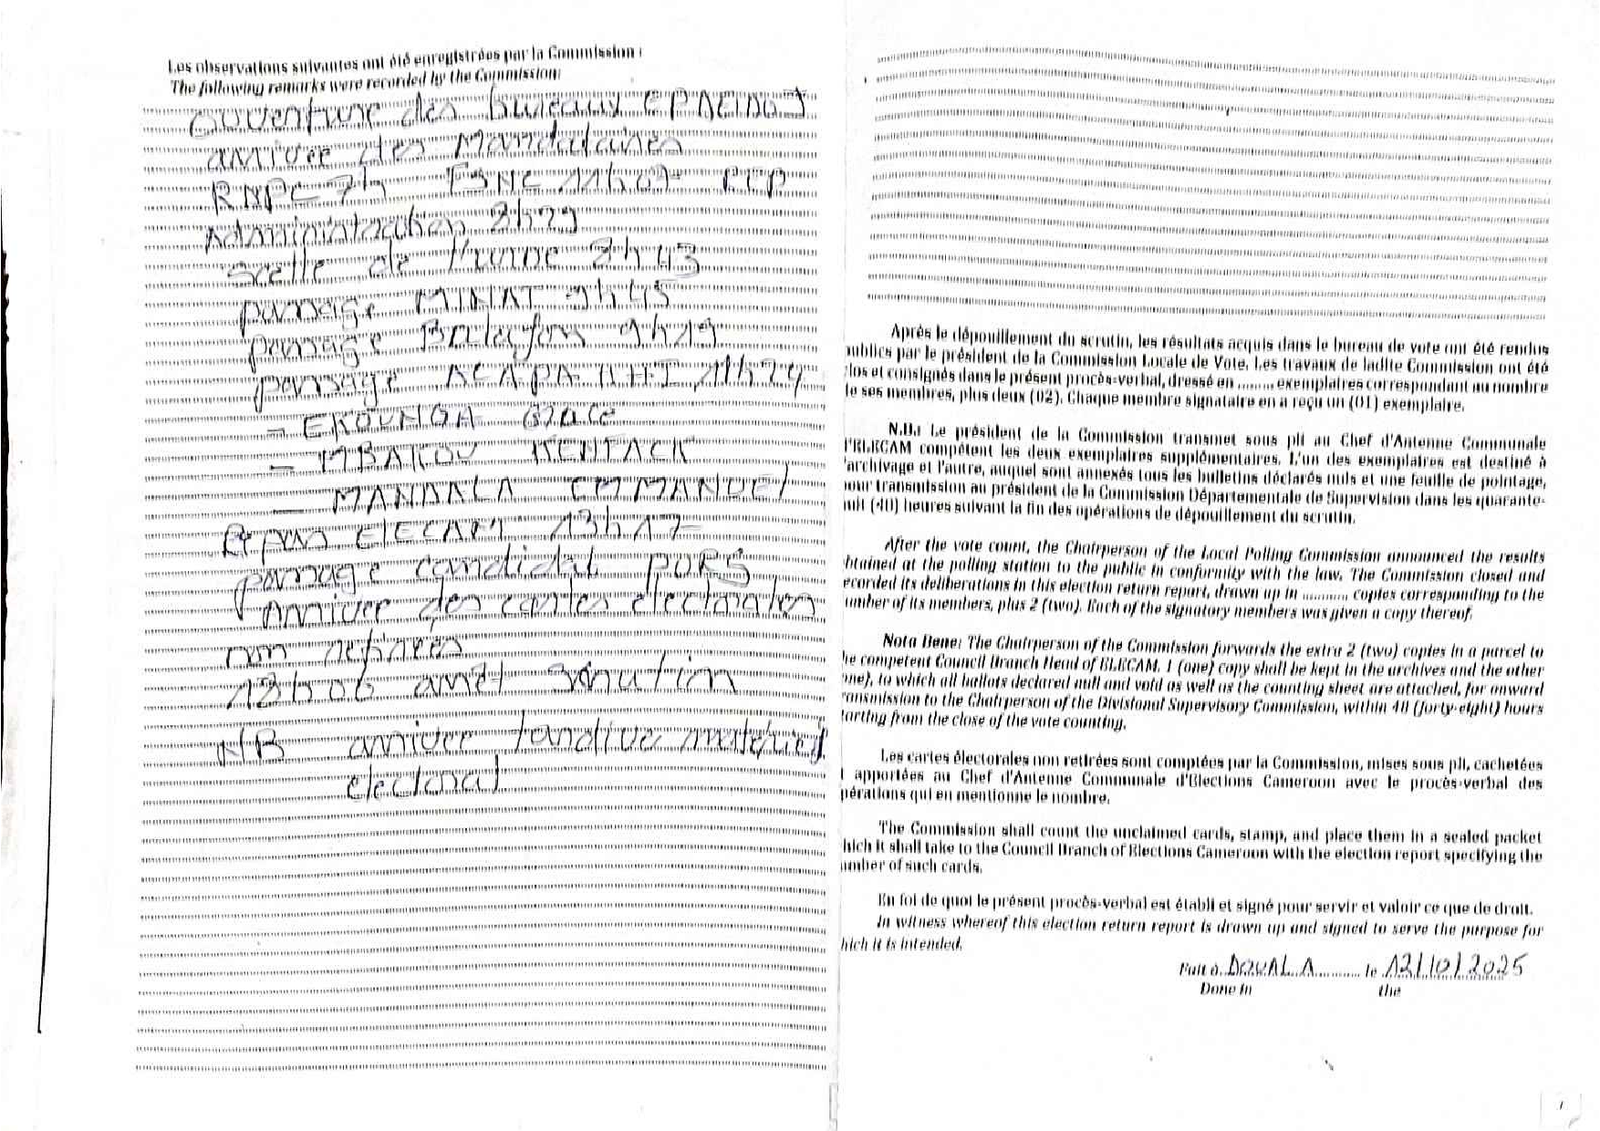 Les observations suivantes ont été enregistrées par la Commission :
The following remarks were recorded by the Commission:
ouverture des bureaux
arrivée des Mandataires
RDPC 7h FSNC 11h07 PCP
Administration 8h29
scellé de l'urne 8h43
passage MINAT 9h45
passage Balafon 9h19
passage 11h24
- EKOUNGA Grace
- MBAKOU KENTACK
- MANDALA EMMANUEL
Repas ELECAM 13h17
passage candidat PURS
Arrivée des cartes électorales
non retirées
18h06 arrêt scrutin
NB arrivée tardive matériel
électoral
Après le dépouillement du scrutin, les résultats acquis dans le bureau de vote ont été rendus
publics par le président de la Commission Locale de Vote. Les travaux de ladite Commission ont été
los et consignés dans le présent procès-verbal, dressé en ......... exemplaires correspondant au nombre
le ses membres, plus deux (02). Chaque membre signataire en a reçu un (01) exemplaire.
N.B.: Le président de la Commission transmet sous pli au Chef d'Antenne Communale
l'ELECAM compétent les deux exemplaires supplémentaires. L'un des exemplaires est destiné à
'archivage et l'autre, auquel sont annexés tous les bulletins déclarés nuls et une feuille de pointage,
our transmission au président de la Commission Départementale de Supervision dans les quarante-
uit (48) heures suivant la fin des opérations de dépouillement du scrutin.
After the vote count, the Chairperson of the Local Polling Commission announced the results
btained at the polling station to the public in conformity with the law. The Commission closed and
ecorded its deliberations in this election return report, drawn up in .......... copies corresponding to the
umber of its members, plus 2 (two). Each of the signatory members was given a copy thereof.
Nota Bene: The Chairperson of the Commission forwards the extra 2 (two) copies in a parcel to
he competent Council Branch Head of ELECAM. 1 (one) copy shall be kept in the archives and the other
one), to which all ballots declared null and void as well as the counting sheet are attached, for onward
ransmission to the Chairperson of the Divisional Supervisory Commission, within 48 (forty-eight) hours
tarting from the close of the vote counting.
Les cartes électorales non retirées sont comptées par la Commission, mises sous pli, cachetées
t apportées au Chef d'Antenne Communale d'Elections Cameroon avec le procès-verbal des
pérations qui en mentionne le nombre.
The Commission shall count the unclaimed cards, stamp, and place them in a sealed packet
hich it shall take to the Council Branch of Elections Cameroon with the election report specifying the
umber of such cards.
En foi de quoi le présent procès-verbal est établi et signé pour servir et valoir ce que de droit.
In witness whereof this election return report is drawn up and signed to serve the purpose for
hich it is intended.
Fait à DOUALA .......... le 12/10/2025
Done in the